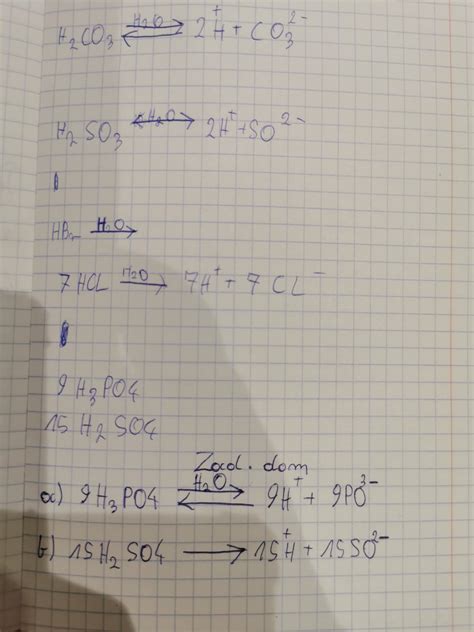 H₂CO₃ ⇌ H₂O 2H⁺ + CO₃²⁻
H₂SO₃ ⟷ H₂O 2H⁺ + SO²⁻
HBr H₂O →
7HCL H₂O → 7H⁺ + 7CL⁻
9H₃PO4
15H₂SO4
Zad. dom
a) 9H₃PO4 H₂O ⇌ 9H⁺ + 9PO³⁻
b) 15H₂SO4 → 15H⁺ + 15SO²⁻